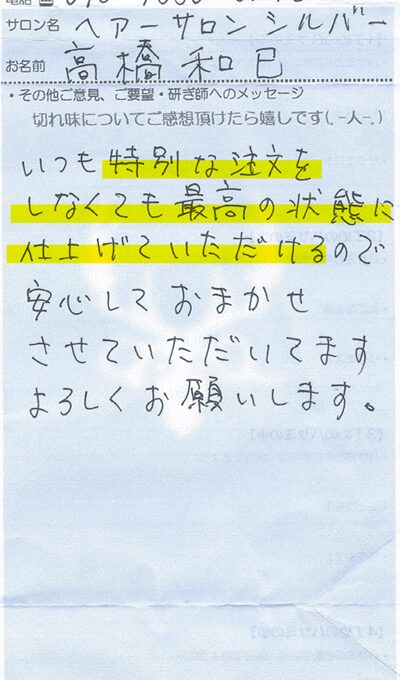 サロン名 ヘアーサロン シルバー
お名前 高橋 和巳
・その他ご意見、ご要望・研ぎ師へのメッセージ
切れ味についてご感想頂けたら嬉しです(.-人-.)
いつも特別な注文を
しなくても最高の状態に
仕上げていただけるので
安心しておまかせ
させていただいてます
よろしくお願いします。